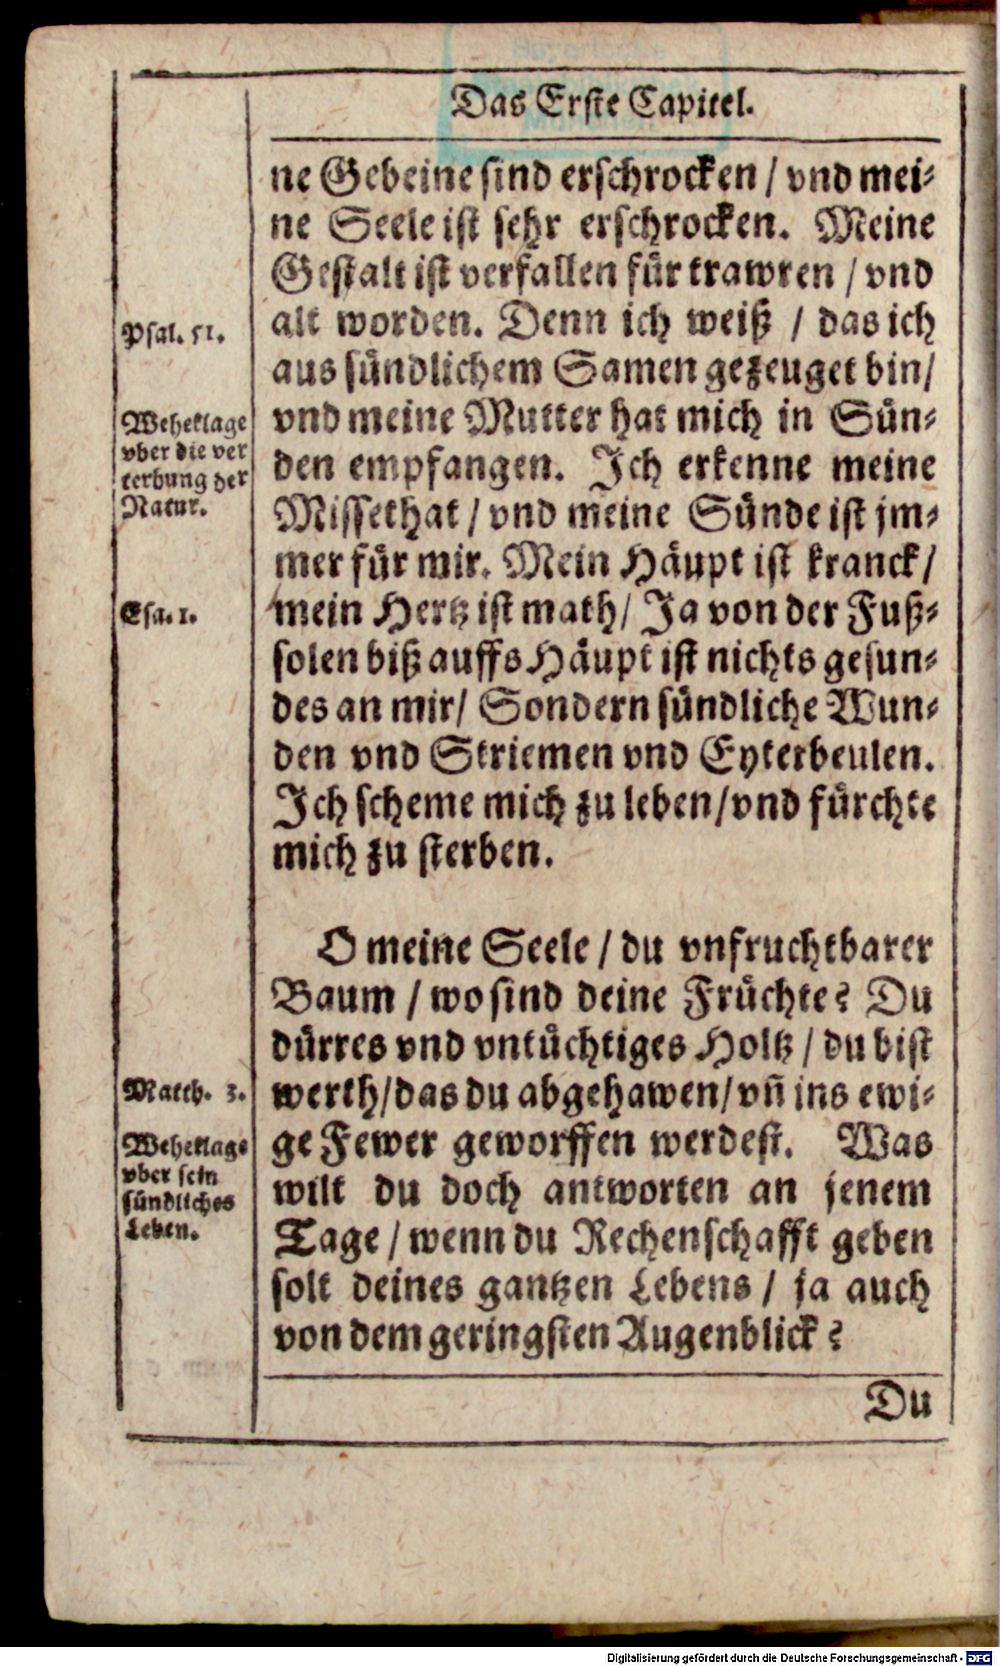 Das Erste Capitel.
ne Gebeine sind erschrocken / vnd mei-
ne Seele ist sehr erschrocken. Meine
Gestalt ist verfallen für trawren / vnd
alt worden. Denn ich weiß / das ich
aus sündlichem Samen gezeuget bin/
vnd meine Mutter hat mich in Sün-
den empfangen. Ich erkenne meine
Missethat / vnd meine Sünde ist jm-
mer für mir. Mein Häupt ist kranck/
mein Hertz ist math/ Ja von der Fuß-
solen biß auffs Häupt ist nichts gesun-
des an mir/ Sondern sündliche Wun-
den vnd Striemen vnd Eyterbeulen.
Ich scheme mich zu leben/vnd fürchte
mich zu sterben.
Psal. 51.
Weheklage
vber die ver
terbung der
Natur.
Esa. 1.
O meine Seele / du vnfruchtbarer
Baum / wo sind deine Früchte? Du
dürres vnd vntüchtiges Holtz / du bist
werth/das du abgehawen/vn̄ ins ewi-
ge Fewer geworffen werdest. Was
wilt du doch antworten an jenem
Tage / wenn du Rechenschafft geben
solt deines gantzen Lebens / ja auch
von dem geringsten Augenblick?
Matth. 3.
Weheklage
vber sein
sündliches
Leben.
Du
Digitalisierung gefördert durch die Deutsche Forschungsgemeinschaft - DFG